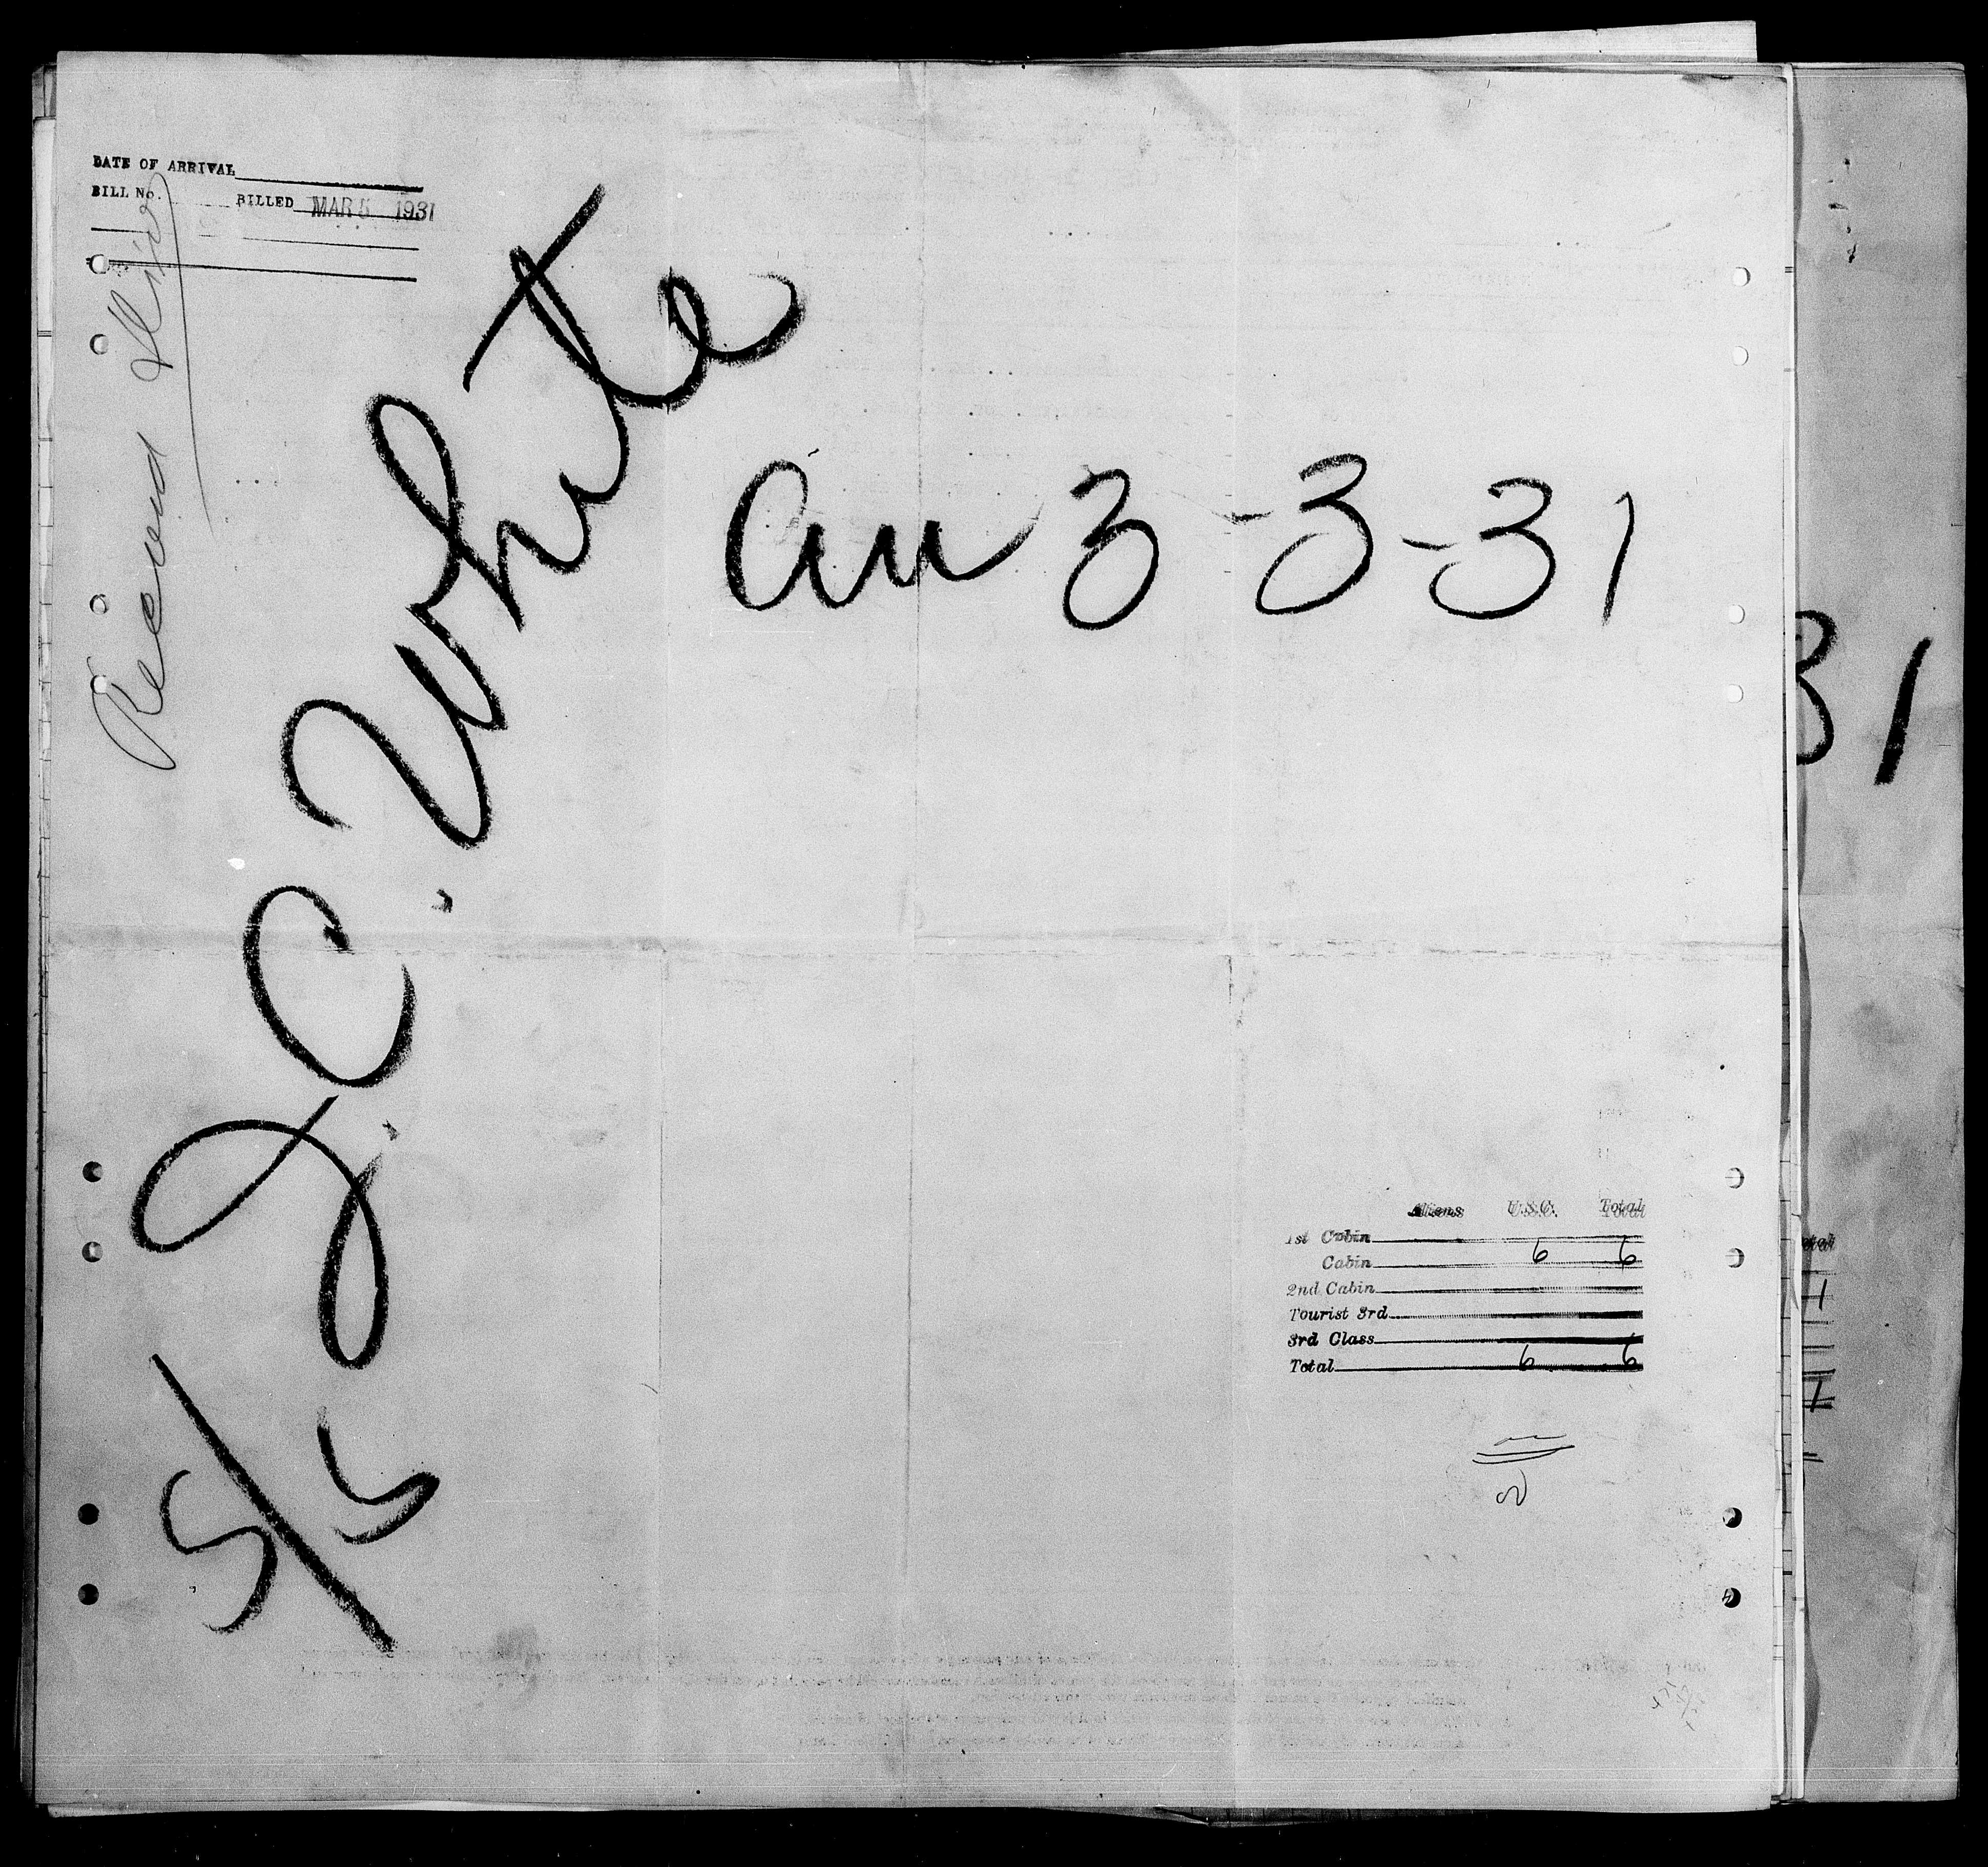 DATE OF ARRIVAL
BILL No. BILLED MAR 5 1931
S/S J.C. White
Arr 3-3-31
Aliens U.S.C. Total
1st Cabin
Cabin 6 6
2nd Cabin
Tourist 3rd
3rd Class
Total 6 6
31